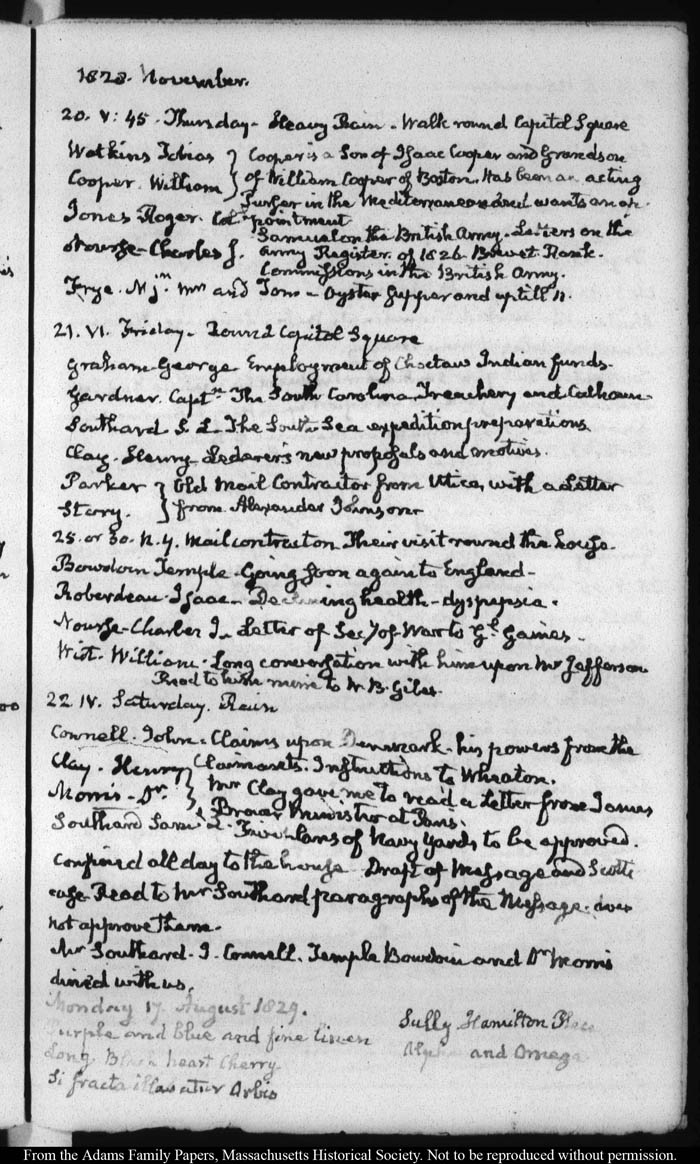 1828. November.
20. V: 45. Thursday - Heavy Rain - Walk round Capitol Square
Watkins Tobias } Cooper is a Son of Isaac Cooper and Grandson
Cooper. William } of William Cooper of Boston. Has been an acting
Purser in the Mediterranean and wants an ap-
Jones Roger. Col. pointment
Samuel on the British Army - Letters on the
Nourse - Charles J. Army Register of 1826 - Brevet Rank.
Commissions in the British Army.
Frye. Mjr. Mrs and Tom - Oyster Supper and up till 11.
21. VI. Friday - Round Capitol Square
Graham - George Employment of Choctaw Indian funds.
Gardner. Captn. The South Carolina Treachery and Calhoun.
Southard S. L. The South Sea expedition preparations.
Clay - Henry Lederer's new proposals and motives.
Parker } Old Mail Contractor from Utica, with a Letter
Storry. } from Alexander Johnson
25. or 30. N.Y. Mail contractors Their visit round the house.
Bowdoin Temple - Going soon again to England -
Roberdeau - Isaac - Declining health - dyspepsia.
Nourse - Charles J. Letter of Secy of War to Gl. Gaines -
Wirt - William - Long conversation with him upon Mr Jefferson
Read to him mine to W. B. Giles.
22. IV. Saturday. Rain
Connell. John. Claims upon Denmark - his powers from the
Clay - Henry } Claimants. Instructions to Wheaton.
Morris - Dr. } Mr Clay gave me to read a Letter from James
Brown Minister at Paris.
Southard Saml. L. Two plans of Navy Yards to be approved.
Confined all day to the house Draft of Message and Scott's
case - Read to Mr Southard paragraphs of the Message. does
not approve them -
Mr Southard - J. Connell. Temple Bowdoin and Dr Morris
dined with us.
Monday 17. August 1829.
Purple and blue and fine linen
Sully Hamilton Place
Long Black heart Cherry
Alpha and Omega
Si fracta illabatur Orbis
From the Adams Family Papers, Massachusetts Historical Society. Not to be reproduced without permission.